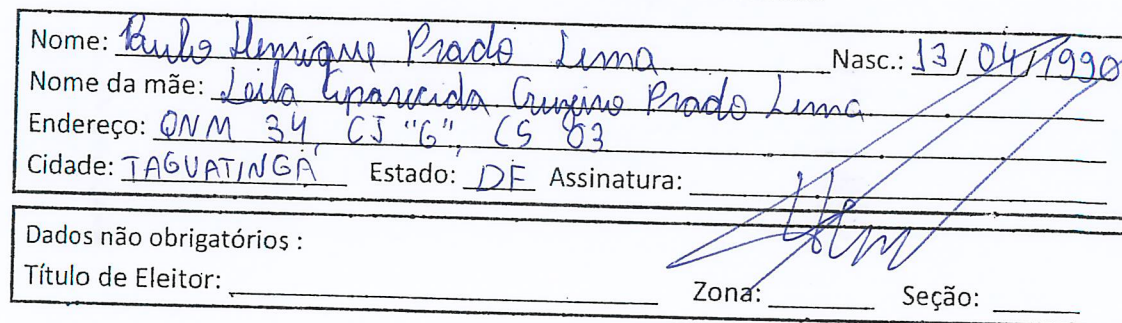 Nome: Paulo Henrique Prado Lima Nasc.: 13/04/1990
Nome da mãe: Leila Aparecida Prado Lima
Endereço: QNM 34, CJ "G", CS 03
Cidade: TAGUATINGA Estado: DF Assinatura:
Dados não obrigatórios :
Título de Eleitor: Zona: Seção: